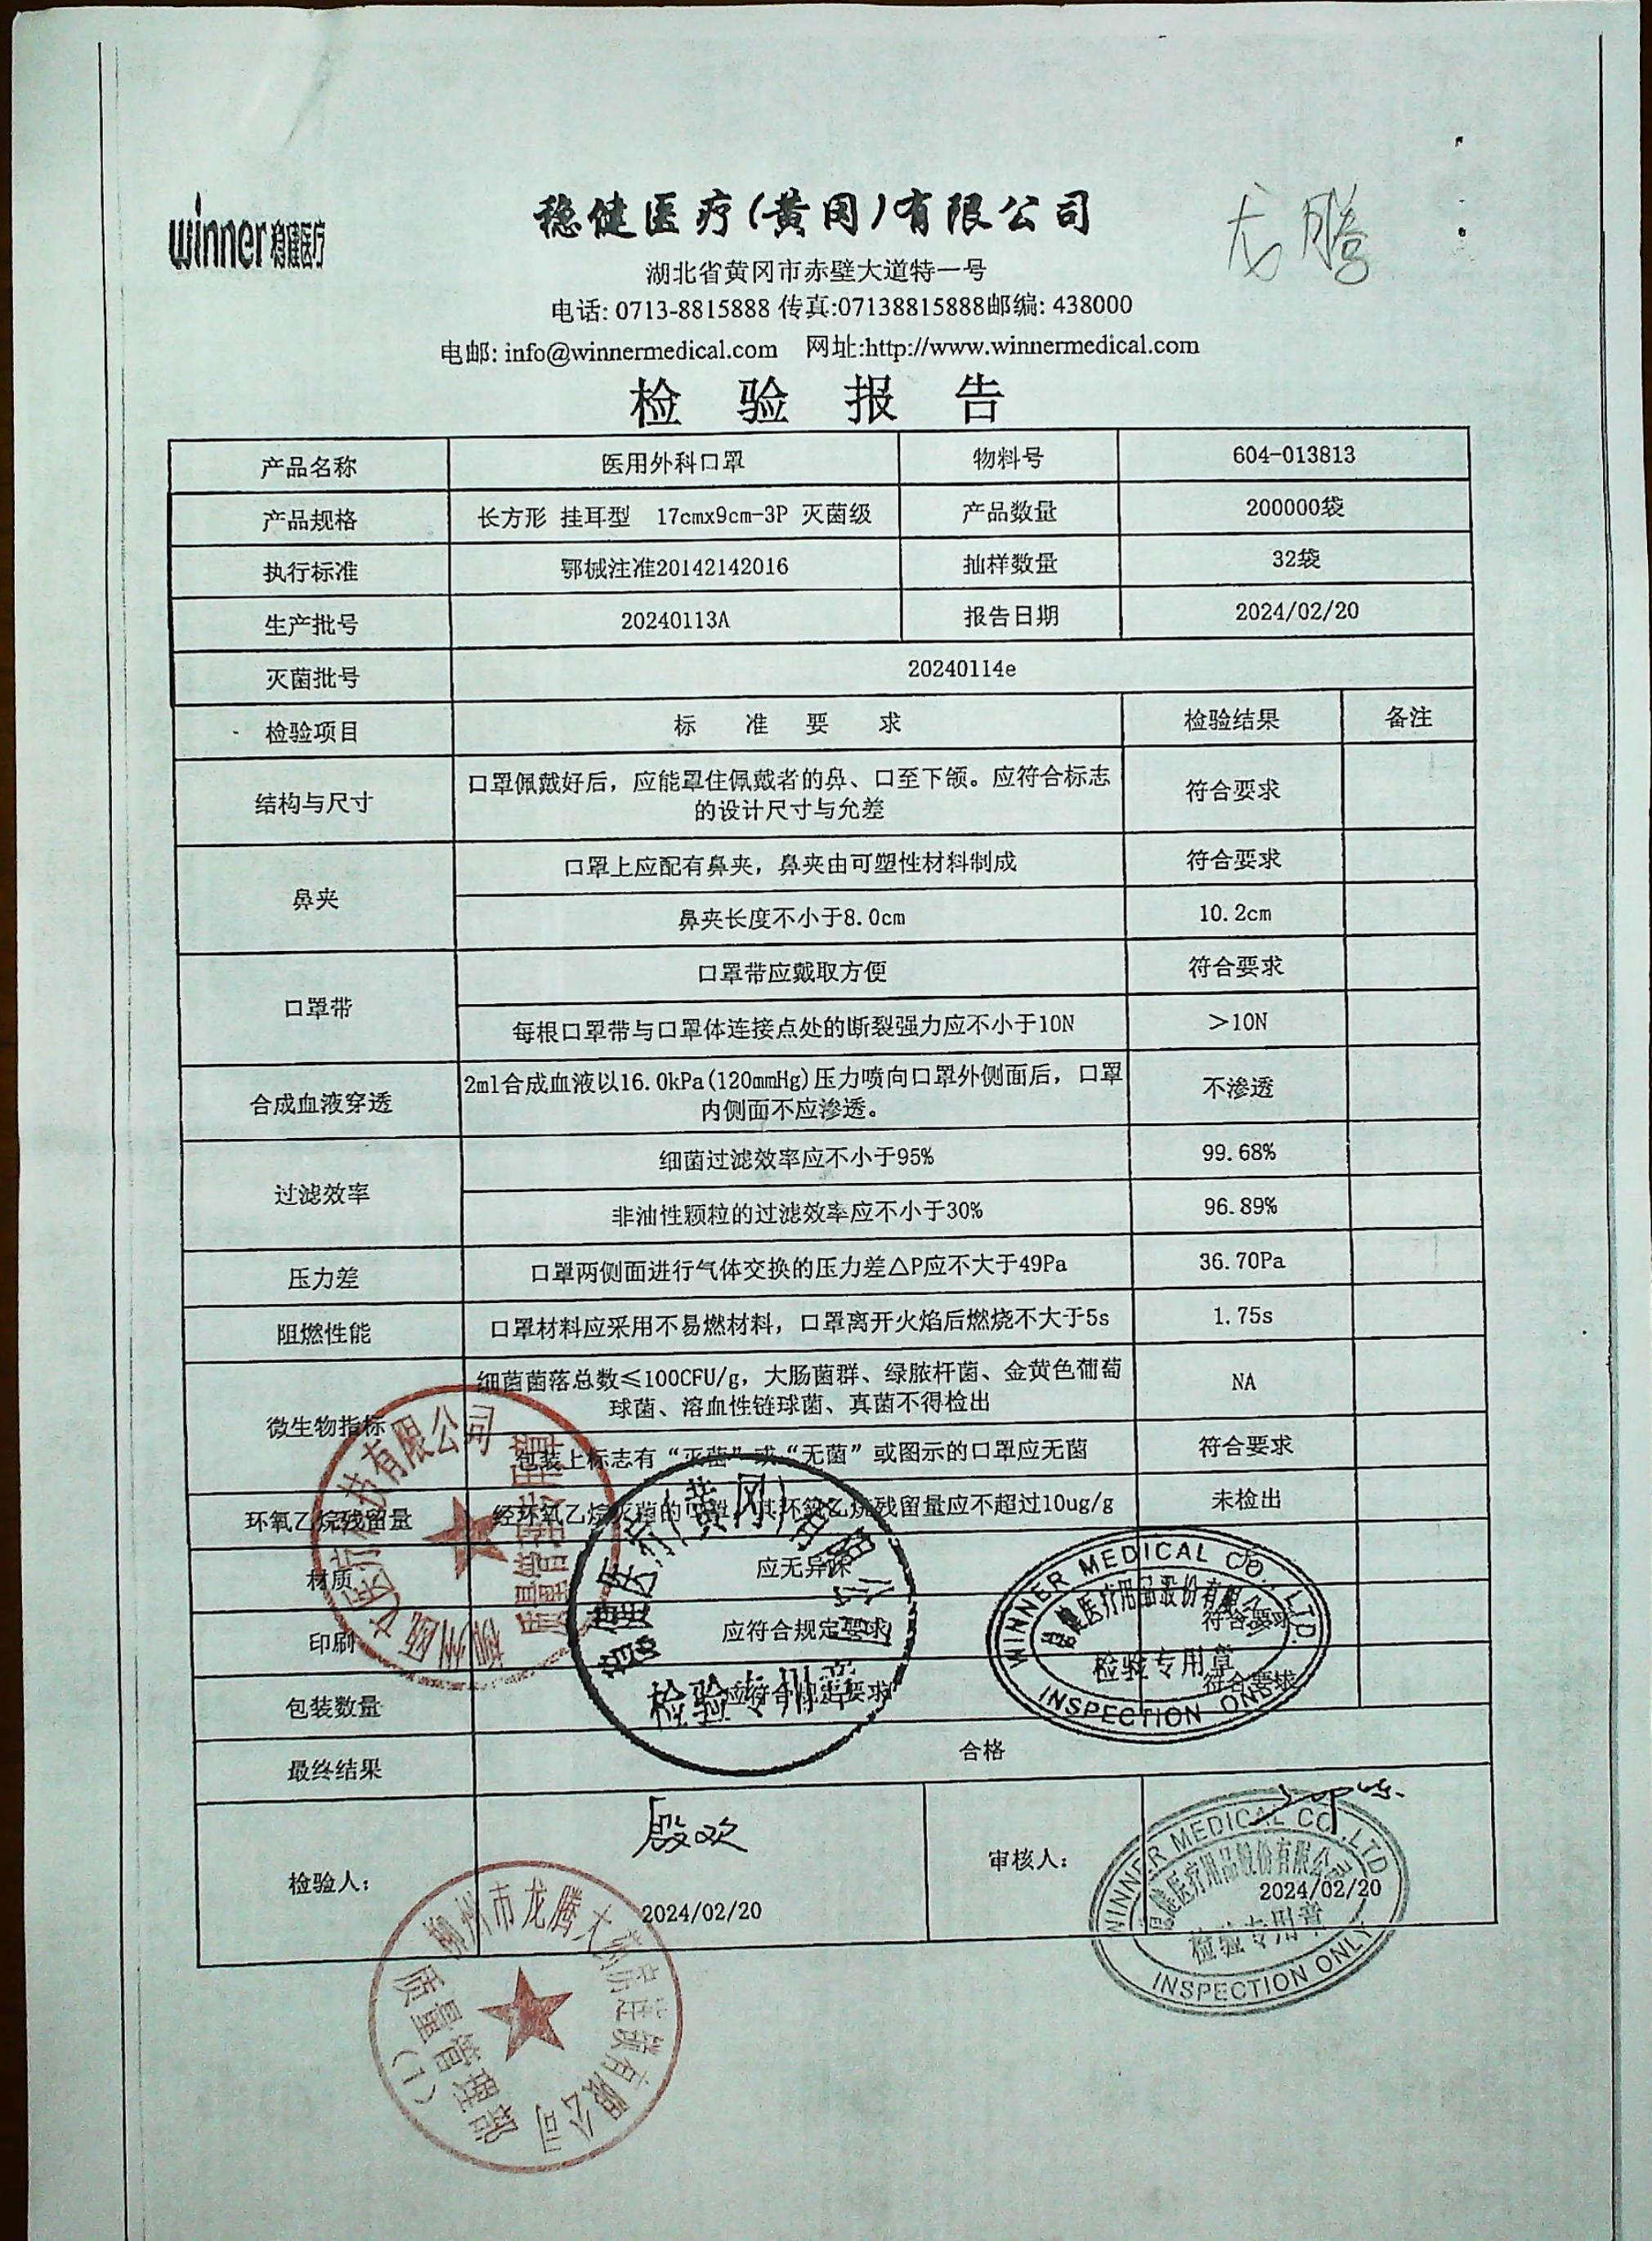 winner 稳健医疗
稳健医疗(黄冈)有限公司
龙腾
湖北省黄冈市赤壁大道特一号
电话: 0713-8815888 传真:07138815888邮编: 438000
电邮: info@winnermedical.com 网址:http://www.winnermedical.com
检 验 报 告
产品名称 医用外科口罩 物料号 604-013813
产品规格 长方形 挂耳型 17cmx9cm-3P 灭菌级 产品数量 200000袋
执行标准 鄂械注准20142142016 抽样数量 32袋
生产批号 20240113A 报告日期 2024/02/20
灭菌批号 20240114e
检验项目 标 准 要 求 检验结果 备注
结构与尺寸 口罩佩戴好后，应能罩住佩戴者的鼻、口至下颌。应符合标志
的设计尺寸与允差 符合要求
鼻夹 口罩上应配有鼻夹，鼻夹由可塑性材料制成 符合要求
鼻夹长度不小于8.0cm 10.2cm
口罩带 口罩带应戴取方便 符合要求
每根口罩带与口罩体连接点处的断裂强力应不小于10N ＞10N
合成血液穿透 2ml合成血液以16.0kPa(120mmHg)压力喷向口罩外侧面后，口罩
内侧面不应渗透。 不渗透
过滤效率 细菌过滤效率应不小于95% 99.68%
非油性颗粒的过滤效率应不小于30% 96.89%
压力差 口罩两侧面进行气体交换的压力差△P应不大于49Pa 36.70Pa
阻燃性能 口罩材料应采用不易燃材料，口罩离开火焰后燃烧不大于5s 1.75s
微生物指标 细菌菌落总数≤100CFU/g，大肠菌群、绿脓杆菌、金黄色葡萄
球菌、溶血性链球菌、真菌不得检出 NA
包装上标志有“灭菌”或“无菌”或图示的口罩应无菌 符合要求
环氧乙烷残留量 经环氧乙烷灭菌的口罩，其环氧乙烷残留量应不超过10ug/g 未检出
材质 应无异味
印刷 应符合规定要求 符合要求
包装数量 应符合规定要求 符合要求
最终结果 合格
检验人： 殷欢 2024/02/20 审核人： 2024/02/20
医疗科技有限公司
质量管理专用章
稳健医疗(黄冈)有限公司
检验专用章
WINNER MEDICAL CO., LTD.
稳健医疗用品股份有限公司
检验专用章
INSPECTION ONLY
WINNER MEDICAL CO., LTD
稳健医疗用品股份有限公司
检验专用章
INSPECTION ONLY
柳州市龙腾大药房连锁有限公司
质量管理部
(1)